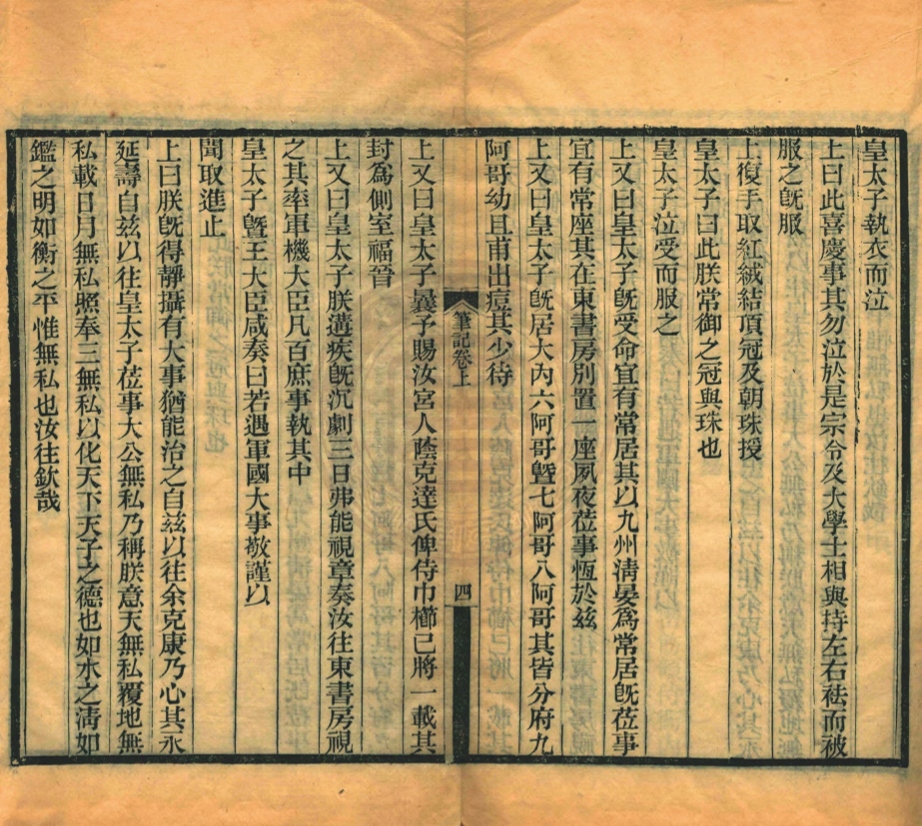 皇太子執衣而泣
上曰此喜慶事其勿泣於是宗令及大學士相與持左右袪而被
服之旣服
上復手取紅絨結頂冠及朝珠授
皇太子曰此朕常御之冠與珠也
皇太子泣受而服之
上又曰皇太子旣受命宜有常居其以九州淸晏爲常居旣莅事
宜有常座其在東書房別置一座夙夜莅事恆於兹
上又曰皇太子旣居大內六阿哥曁七阿哥八阿哥其皆分府九
阿哥幼且甫出痘其少待
筆記卷上
四
上又曰皇太子曩予賜汝宮人蔭克達氏俾侍巾櫛已將一載其
封爲側室福晉
上又曰皇太子朕遘疾旣沉劇三日弗能視章奏汝往東書房視
之其率軍機大臣凡百庶事執其中
皇太子曁王大臣咸奏曰若遇軍國大事敬謹以
聞取進止
上曰朕旣得靜攝有大事猶能治之自兹以往余克康乃心其永
延壽自兹以往皇太子莅事大公無私乃稱朕意天無私覆地無
私載日月無私照奉三無私以化天下天子之德也如水之淸如
鑑之明如衡之平惟無私也汝往欽哉